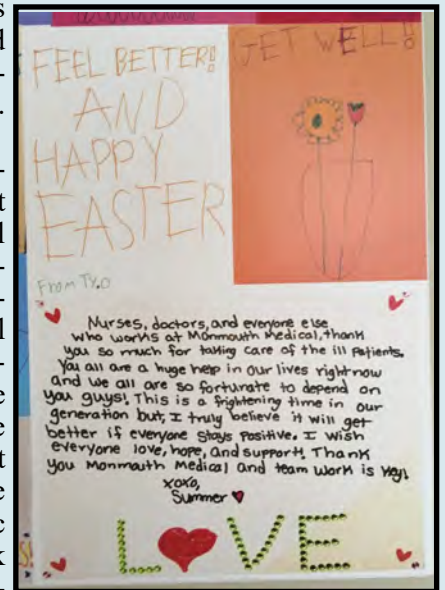 FEEL BETTER!
AND
HAPPY
EASTER
From Ty.O
GET WELL!
Nurses, doctors, and everyone else
who works at Monmouth Medical, thank
you so much for taking care of the ill patients.
You all are a huge help in our lives right now
and we all are so fortunate to depend on
you guys! This is a frightening time in our
generation but, I truly believe it will get
better if everyone stays positive. I wish
everyone love, hope, and support! Thank
you Monmouth Medical and team work is key!
xoxo,
Summer
LOVE